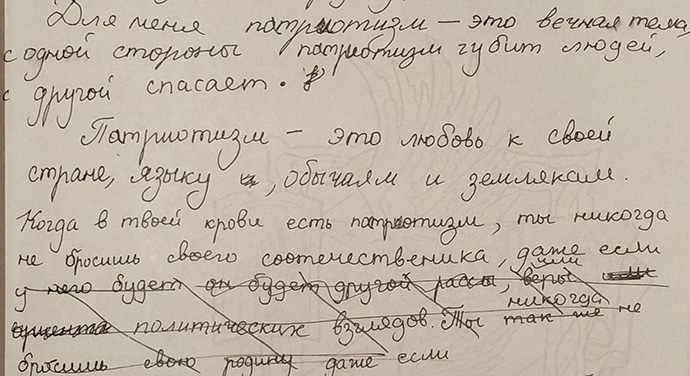 Для меня патриотизм — это вечная тема,
с одной стороны патриотизм губит людей,
с другой спасает.
Патриотизм — это любовь к своей
стране, языку, обычаям и землякам.
Когда в твоей крови есть патриотизм, ты никогда
не бросишь своего соотечественика, даже если
у него будет он будет другой рассы, веры или
политических взглядов. Ты так же никогда не
бросишь свою родину даже если